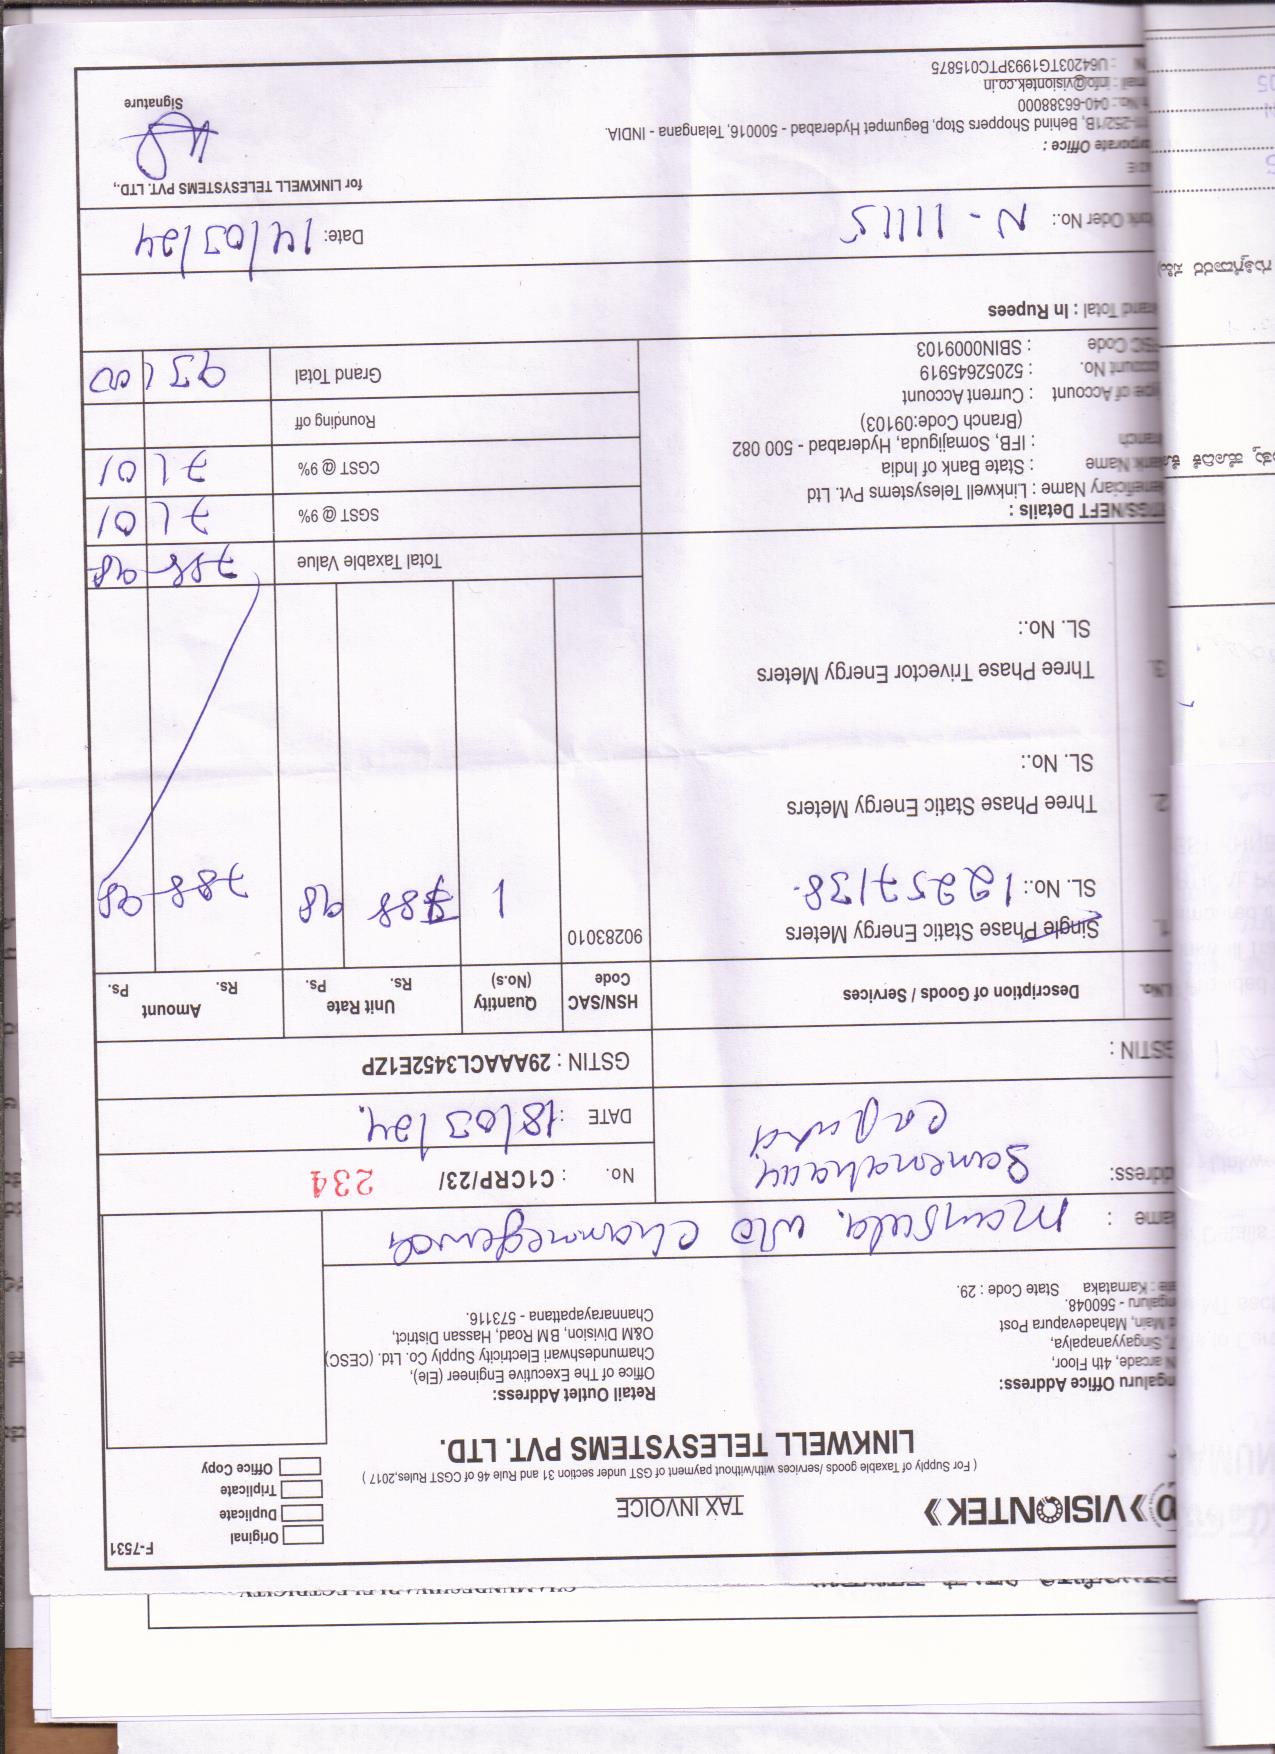 F-7531
VISIONTEK
TAX INVOICE
Original
Duplicate
Triplicate
Office Copy
( For Supply of Taxable goods /services with/without payment of GST under section 31 and Rule 46 of CGST Rules,2017 )
LINKWELL TELESYSTEMS PVT. LTD.
ngaluru Office Address:
N arcade, 4th Floor,
7, Singayyanapalya,
d Main, Mahadevapura Post
ngaluru - 560048.
ate : Karnataka State Code : 29.
Retail Outlet Address:
Office of The Executive Engineer (Ele),
Chamundeshwari Electricity Supply Co. Ltd. (CESC)
O&M Division, BM Road, Hassan District,
Channarayapattana - 573116.
ame : Mansula. W/o Channegowda
ddress:
No. : C1CRP/23/ 234
DATE : 18/03/24.
GSTIN :
GSTIN : 29AAACL3452E1ZP
Sl.No. Description of Goods / Services HSN/SAC Code Quantity (No.s) Unit Rate Rs. Ps. Amount Rs. Ps.
1. Single Phase Static Energy Meters 90283010 1 788 98 788 98
SL. No.: 12257138.
2. Three Phase Static Energy Meters
SL. No.:
3. Three Phase Trivector Energy Meters
SL. No.:
Total Taxable Value 788 98
SGST @ 9% 71 01
CGST @ 9% 71 01
Rounding off
Grand Total 931 00
RTGS/NEFT Details :
Beneficiary Name : Linkwell Telesystems Pvt. Ltd
Bank Name : State Bank of India
Branch : IFB, Somajiguda, Hyderabad - 500 082
(Branch Code:09103)
Type of Account : Current Account
Account No. : 52052645919
IFSC Code : SBIN0009103
Grand Total : In Rupees
Work Oder No.: N - 11115
Date: 14/03/24
for LINKWELL TELESYSTEMS PVT. LTD.,
Signature
orporate Office :
111-252/1B, Behind Shoppers Stop, Begumpet Hyderabad - 500016, Telangana - INDIA.
No.: 040-66388000
mail : info@visiontek.co.in
N : U64203TG1993PTC015875